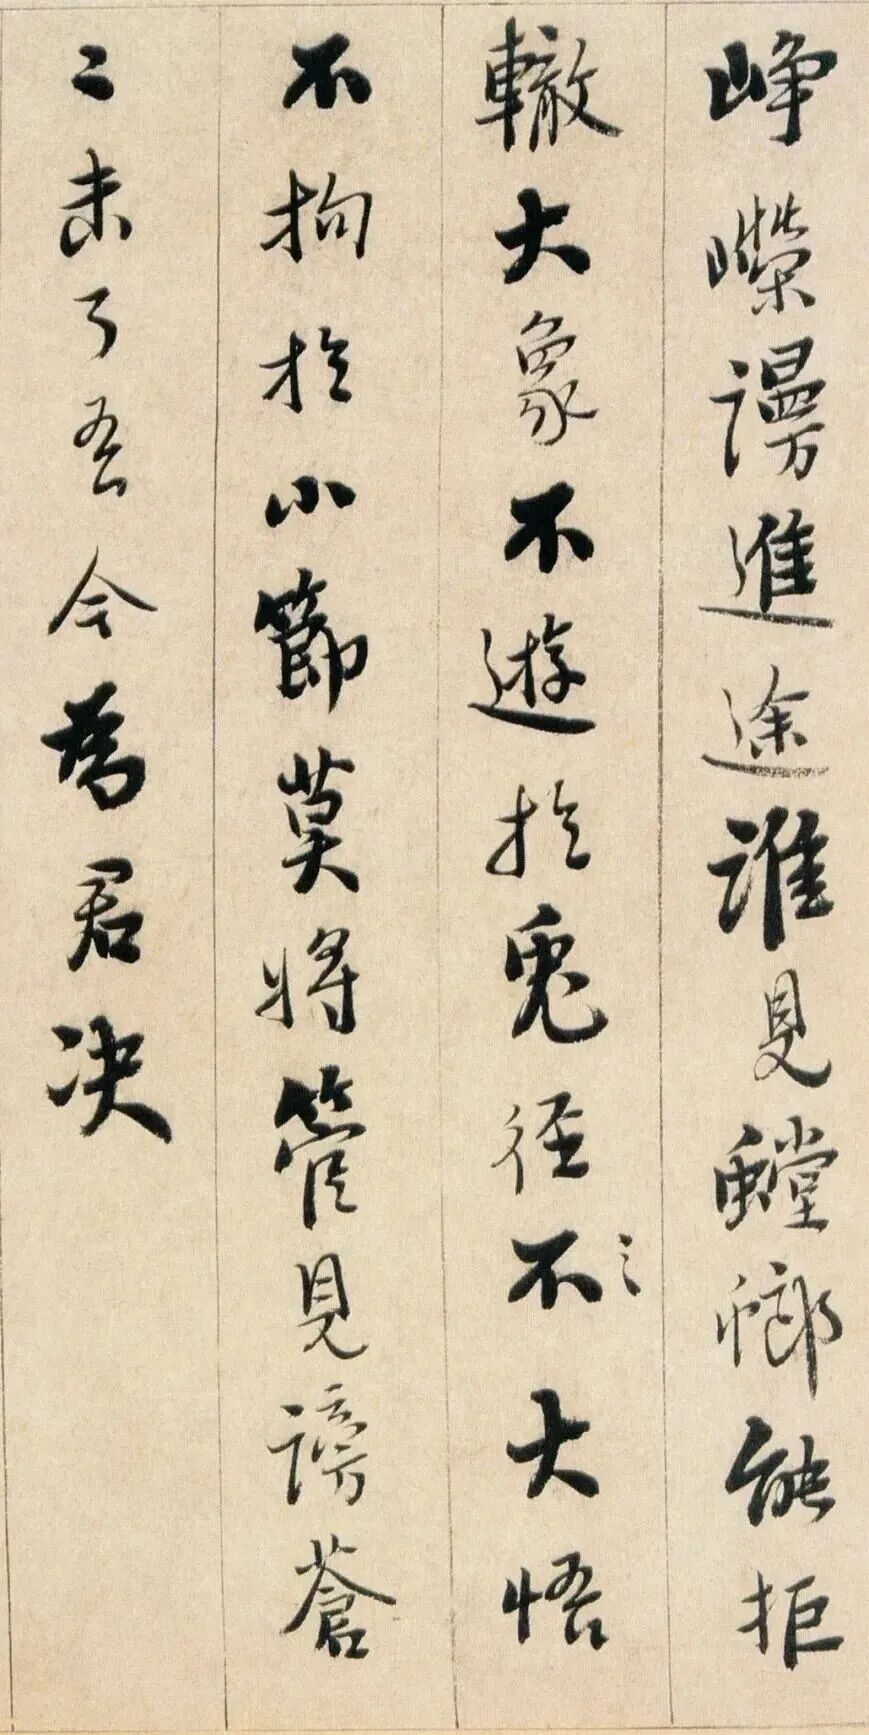 崢嶸謾進途誰見螳螂能拒
轍大象不遊於兎徑不大悟
不拘於小節莫將管見謗蒼
〻未了吾今為君决